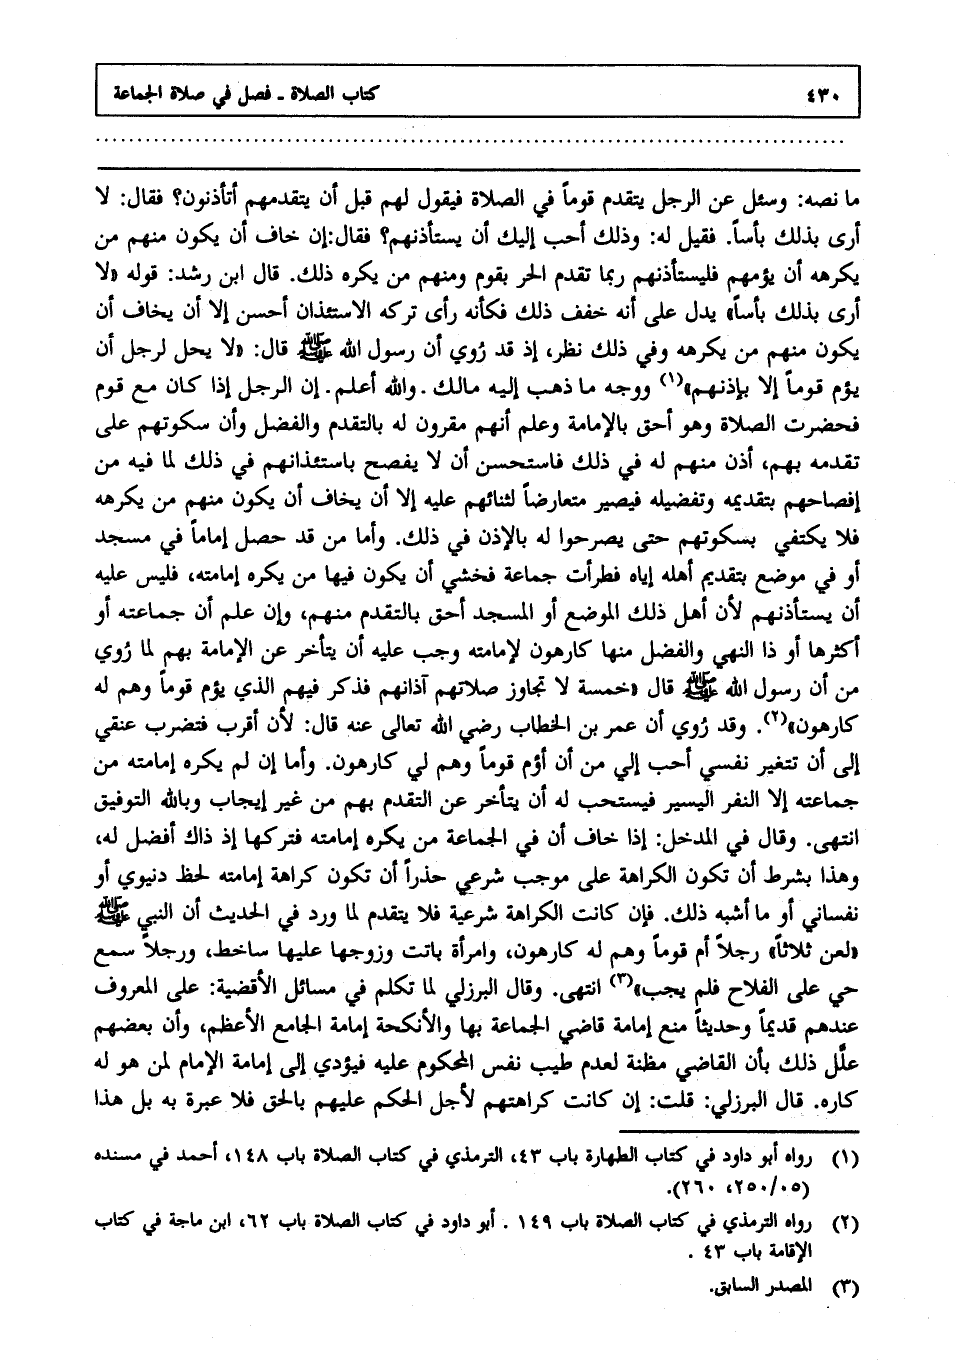 ٤٣٠
كتاب الصلاة ـ فصل في صلاة الجماعة
ما نصه: وسئل عن الرجل يتقدم قوماً في الصلاة فيقول لهم قبل أن يتقدمهم أتأذنون؟ فقال: لا
أرى بذلك بأساً. فقيل له: وذلك أحب إليك أن يستأذنهم؟ فقال:إن خاف أن يكون منهم من
يكرهه أن يؤمهم فليستأذنهم ربما تقدم الحر بقوم ومنهم من يكره ذلك. قال ابن رشد: قوله «لا
أرى بذلك بأساً» يدل على أنه خفف ذلك فكأنه رأى تركه الاستئذان أحسن إلا أن يخاف أن
يكون منهم من يكرهه وفي ذلك نظر، إذ قد رُوي أن رسول الله ﷺ قال: «لا يحل لرجل أن
يؤم قوماً إلا بإذنهم»(١) ووجه ما ذهب إليه مالك ـ والله أعلم ـ إن الرجل إذا كان مع قوم
فحضرت الصلاة وهو أحق بالإمامة وعلم أنهم مقرون له بالتقدم والفضل وأن سكوتهم على
تقدمه بهم، أذن منهم له في ذلك فاستحسن أن لا يفصح باستئذانهم في ذلك لما فيه من
إفصاحهم بتقديمه وتفضيله فيصير متعارضاً لثنائهم عليه إلا أن يخاف أن يكون منهم من يكرهه
فلا يكتفي بسكوتهم حتى يصرحوا له بالإذن في ذلك. وأما من قد حصل إماماً في مسجد
أو في موضع بتقديم أهله إياه فطرأت جماعة فخشي أن يكون فيها من يكره إمامته، فليس عليه
أن يستأذنهم لأن أهل ذلك الموضع أو المسجد أحق بالتقدم منهم، وإن علم أن جماعته أو
أكثرها أو ذا النهي والفضل منها كارهون لإمامته وجب عليه أن يتأخر عن الإمامة بهم لما رُوي
من أن رسول الله ﷺ قال «خمسة لا تجاوز صلاتهم آذانهم فذكر فيهم الذي يؤم قوماً وهم له
كارهون»(٢). وقد رُوي أن عمر بن الخطاب رضي الله تعالى عنه قال: لأن أقرب فتضرب عنقي
إلى أن تتغير نفسي أحب إلي من أن أؤم قوماً وهم لي كارهون. وأما إن لم يكره إمامته من
جماعته إلا النفر اليسير فيستحب له أن يتأخر عن التقدم بهم من غير إيجاب وبالله التوفيق
انتهى. وقال في المدخل: إذا خاف أن في الجماعة من يكره إمامته فتركها إذ ذاك أفضل له،
وهذا بشرط أن تكون الكراهة على موجب شرعي حذراً أن تكون كراهة إمامته لحظ دنيوي أو
نفساني أو ما أشبه ذلك. فإن كانت الكراهة شرعية فلا يتقدم لما ورد في الحديث أن النبي ﷺ
«لعن ثلاثاً» رجلاً أم قوماً وهم له كارهون، وامرأة باتت وزوجها عليها ساخط، ورجلاً سمع
حي على الفلاح فلم يجب»(٣) انتهى. وقال البرزلي لما تكلم في مسائل الأقضية: على المعروف
عندهم قديماً وحديثاً منع إمامة قاضي الجماعة بها والأنكحة إمامة الجامع الأعظم، وأن بعضهم
علّل ذلك بأن القاضي مظنة لعدم طيب نفس المحكوم عليه فيؤدي إلى إمامة الإمام لمن هو له
كاره. قال البرزلي: قلت: إن كانت كراهتهم لأجل الحكم عليهم بالحق فلا عبرة به بل هذا
(١) رواه أبو داود في كتاب الطهارة باب ٤٣، الترمذي في كتاب الصلاة باب ١٤٨، أحمد في مسنده
(٢٥٠/٠٥، ٢٦٠).
(٢) رواه الترمذي في كتاب الصلاة باب ١٤٩ . أبو داود في كتاب الصلاة باب ٦٢، ابن ماجة في كتاب
الإقامة باب ٤٣ .
(٣) المصدر السابق.